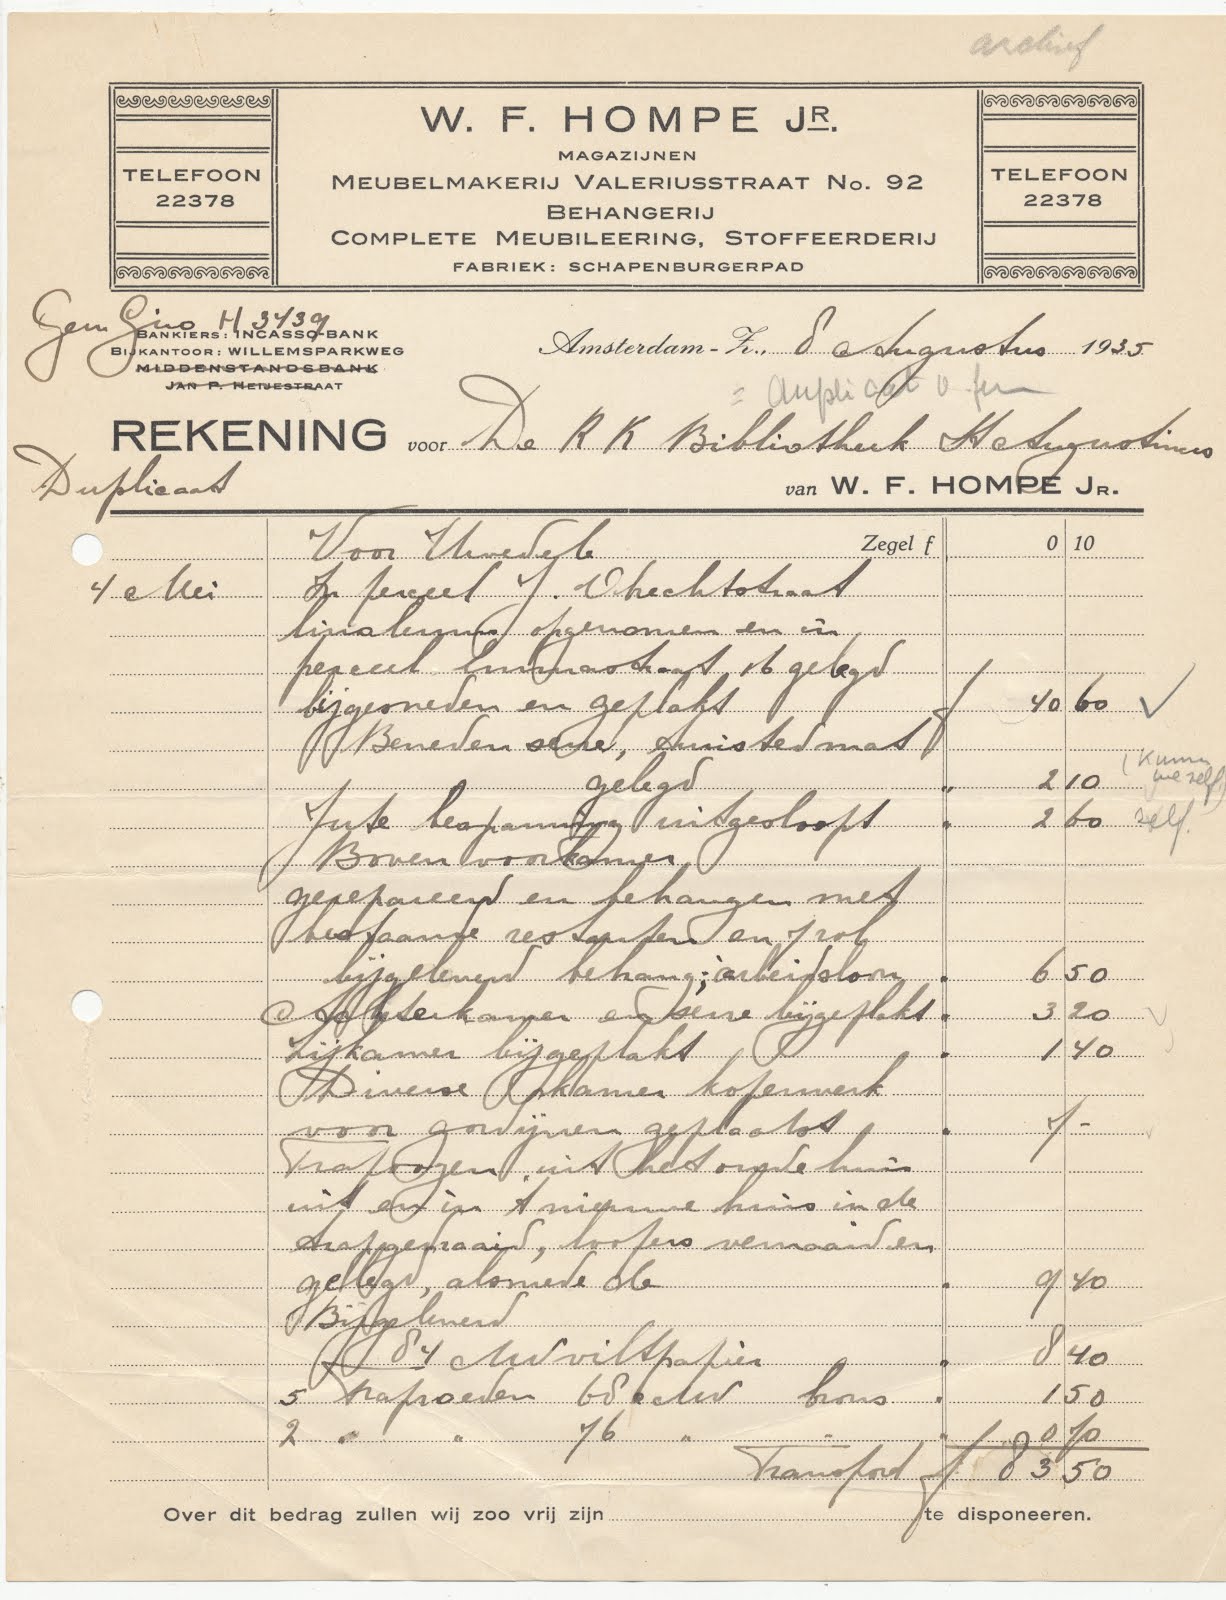 archief
W. F. HOMPE JR.
MAGAZIJNEN
MEUBELMAKERIJ VALERIUSSTRAAT No. 92
BEHANGERIJ
COMPLETE MEUBILEERING, STOFFEERDERIJ
FABRIEK: SCHAPENBURGERPAD
TELEFOON
22378
TELEFOON
22378
Gem Giro H 3439
BANKIERS: INCASSO-BANK
BIJKANTOOR: WILLEMSPARKWEG
MIDDENSTANDSBANK
JAN P. HEIJESTRAAT
Amsterdam-Z., 8 Augustus 1935
= duplicaat v.
REKENING voor De R K Bibliotheek St Augustinus
Duplicaat
van W. F. HOMPE JR.
Voor Zegel f 0 10
4 Mei In perceel J. Obrechtstraat
linoleum opgenomen en in
perceel Emmastraat 16 gelegd
bijgesneden en geplakt f 40 60
Beneden serre, mat
gelegd " 2 10
(kunnen we zelf)
Jute bespanning uitgesloopt " 2 60 zelf.
Boven voorkamer
gerepareerd en behangen met
bestaande restanten en 1 rol
bijgeleverd behang; arbeidsloon " 6 50
Achterkamer en serre bijgeplakt " 3 20
Zijkamer bijgeplakt " 1 40
Diverse kamer koperwerk
voor gordijnen geplaatst " 7 -
Trapogen uit het oude huis
uit en in 't nieuwe huis in de
trap gedraaid, loopers vernaaid en
gelegd, alsmede de " 9 40
Bijgeleverd
84 M viltpapier " 8 40
5 traproeden 68 cM brons " 1 50
2 " " 76 " " " 0 70
Transport f 83 50
Over dit bedrag zullen wij zoo vrij zijn te disponeeren.